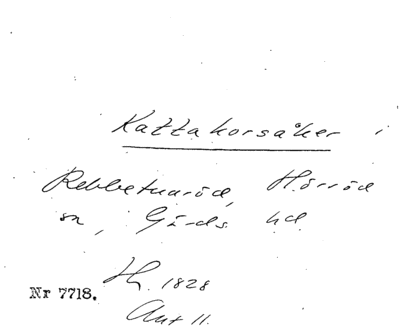 Kattakorsåker i
Rebbetuaröd, Hörröd
sn, Gärds hd.
H. 1828
Nr 7718.
Ant 11.